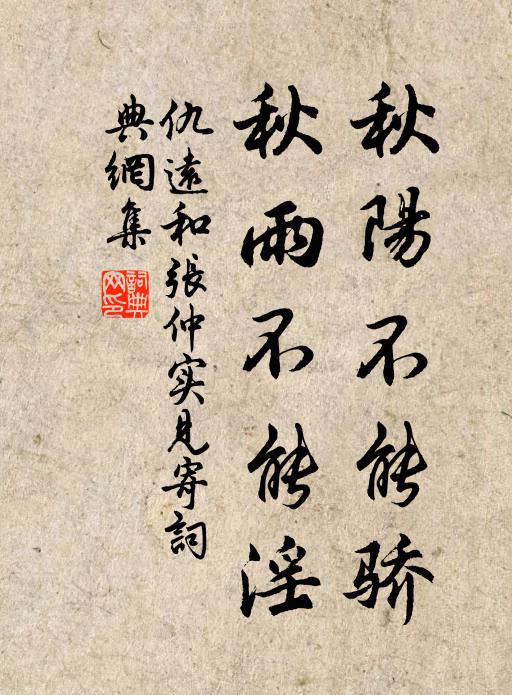 秋陽不能骄
秋雨不能淫
仇遠和張仲实見寄詞
典網集
詞典網印